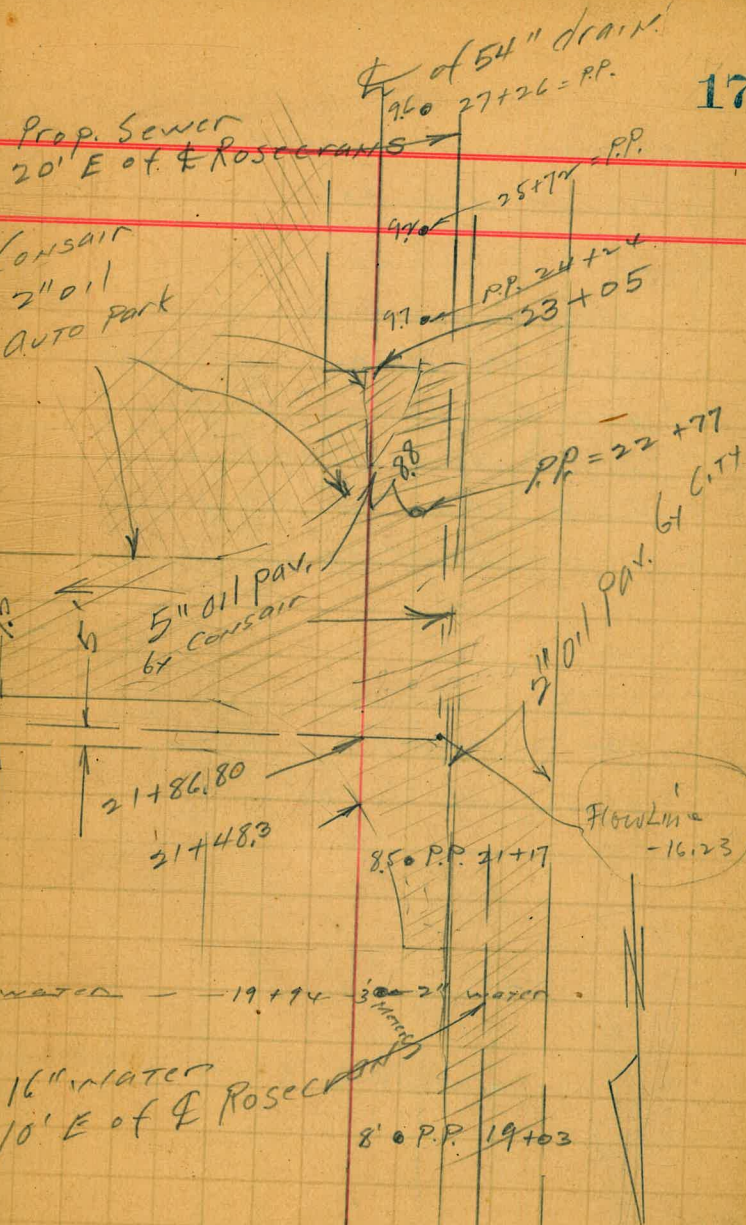 ℄ of 54" drain
17
9.6 27+26 = P.P.
Prop. Sewer
20' E of ℄ Rosecrans
25+72 = P.P.
Consair
2" oil
Auto Park
9.7 P.P. 24+24
23+05
8.8
P.P. = 22+77
5" oil pav.
by Consair
2" oil Pav. by City
21+86.80
21+48.3
Flow Line
-16.23
8.5 P.P. 21+17
water 19+94 3' 2" water
Meter
16" water
10' E of ℄ Rosecrans
8' P.P. 19+03
N